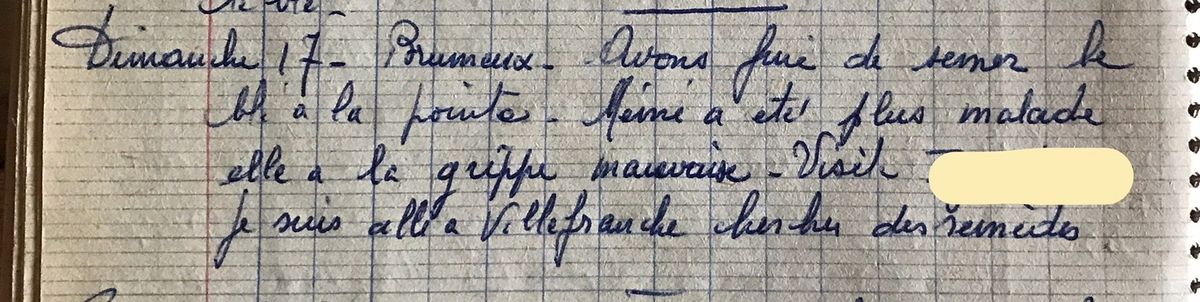 Dimanche 17 - Brumeux - Avons fini de semer le
blé à la pointe - Mémé a été plus malade
elle a la grippe mauvaise - Visite
je suis allé a Villefranche chercher des remèdes.